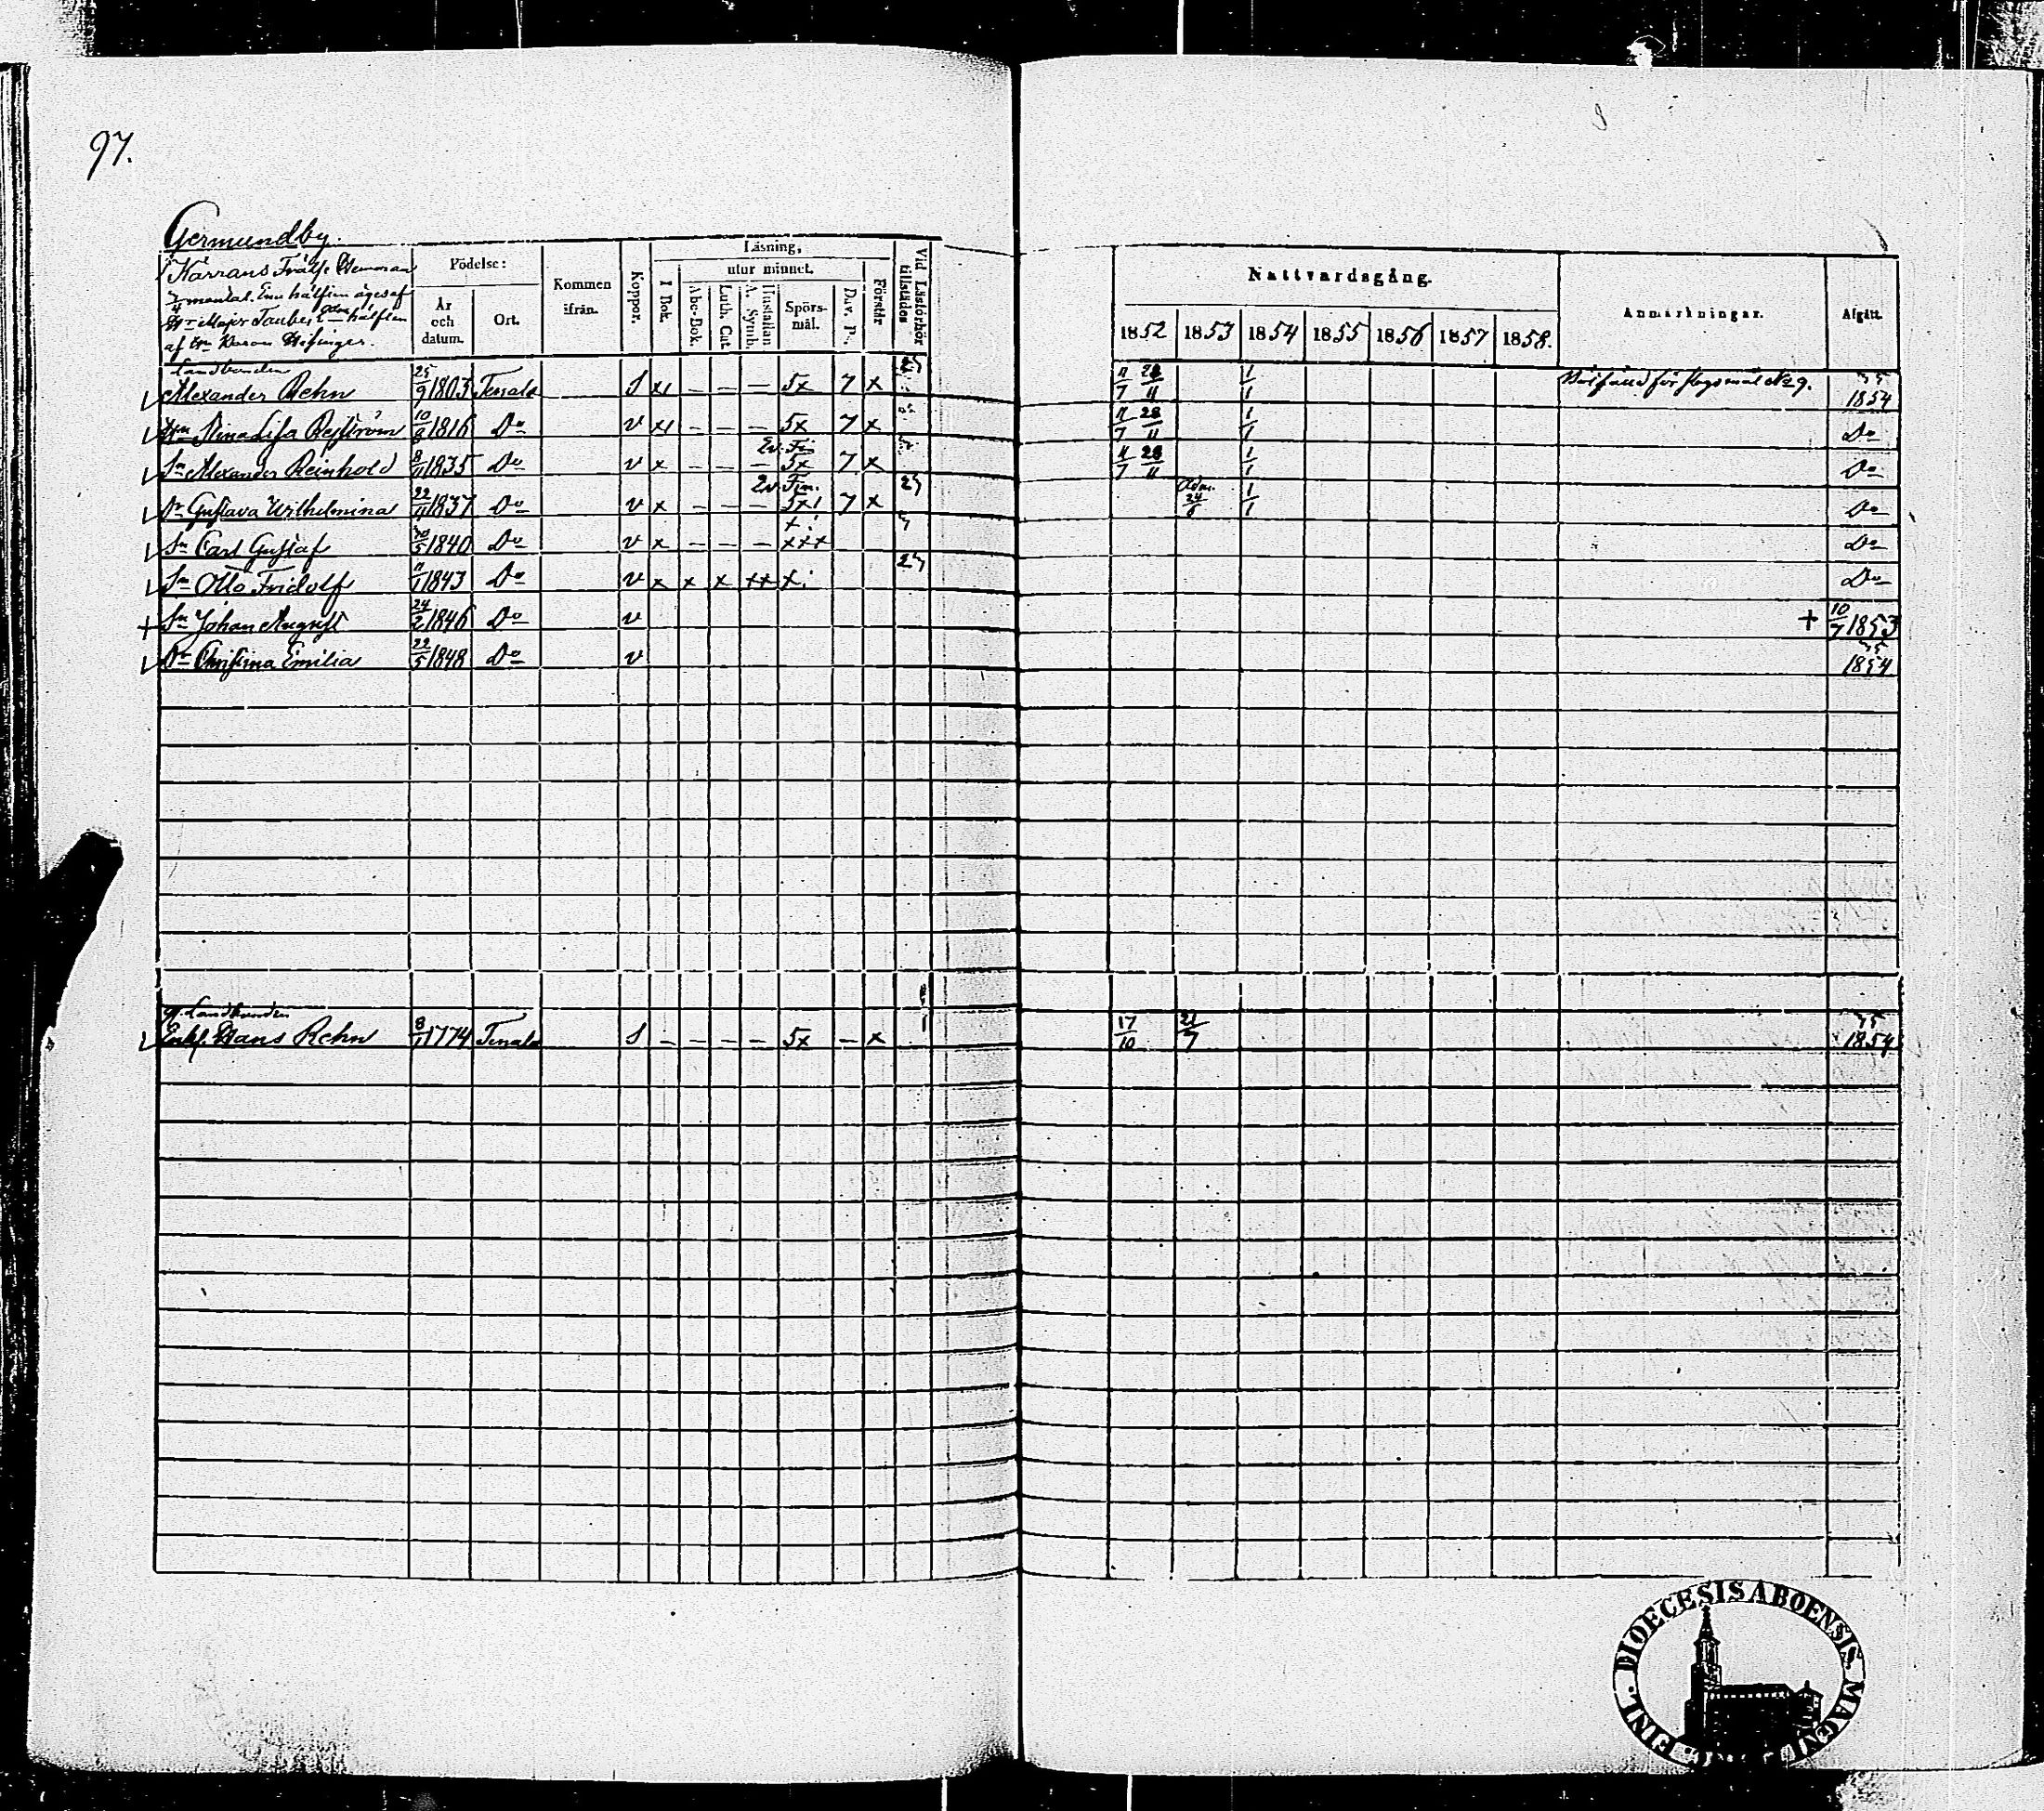 97.
Germundby.
Kärrans Frälse Hemman
3/4 mantal. Ena hälften äges af
Hr Major Taube, andra hälften
af Hr Baron
Födelse:
År och datum.
Ort.
Kommen ifrån.
Koppor.
Läsning,
I Bok.
utur minnet.
Abc-Bok.
Luth. Cat.
Hustaflan A. Symb.
Spörsmål.
Dav. P.
Förstår
Vid Läsförhör tillstädes
Nattvardsgång.
1852 1853 1854 1855 1856 1857 1858.
Anmärkningar.
Afgått.
Landbonden
Alexander Rehn 25/9 1803 Tenala S x1 – – – 5x 7 x 11/7 28/11 1/1 No 9. 75 1854
Hm Stina Lisa 10/8 1816 Do v x1 – – – 5x 7 x 11/7 28/11 1/1 Do
Ev. Fin
Sn Alexander Reinhold 8/11 1835 Do v x – – – 5x 7 x 11/7 28/11 1/1 Do
Ev. Fin.
Dr Gustava Wilhelmina 22/11 1837 Do v x – – – 5x1 7 x Adm. 24/6 1/1 Do
Sn Carl Gustaf 30/5 1840 Do v x – – – xxx Do
Sn Otto Fridolf 11/1 1843 Do v x x x xx x Do
+ Sn Johan August 24/2 1846 Do v + 10/7 1853
Dr Christina Emilia 22/5 1848 Do v 75 1854
gl. Landbonden
Enkl. Hans Rehn 8/11 1774 Tenala S – – – – 5x – x 17/10 21/7 75 1854
DIOECESIS ABOENSIS MAGNI
FINL.